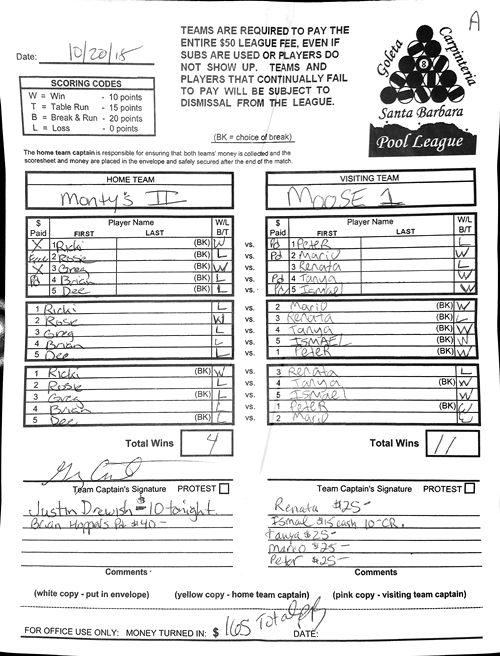 A
Date: 10/20/15
TEAMS ARE REQUIRED TO PAY THE
ENTIRE $50 LEAGUE FEE, EVEN IF
SUBS ARE USED OR PLAYERS DO
NOT SHOW UP. TEAMS AND
PLAYERS THAT CONTINUALLY FAIL
TO PAY WILL BE SUBJECT TO
DISMISSAL FROM THE LEAGUE.
Goleta Carpinteria
8
Santa Barbara
Pool League
SCORING CODES
W = Win - 10 points
T = Table Run - 15 points
B = Break & Run - 20 points
L = Loss - 0 points
(BK = choice of break)
The home team captain is responsible for ensuring that both teams' money is collected and the
scoresheet and money are placed in the envelope and safely secured after the end of the match.
HOME TEAM VISITING TEAM
Monty's II MOOSE 1
$ Paid Player Name FIRST LAST W/L B/T $ Paid Player Name FIRST LAST W/L B/T
X 1 Ricki (BK) W vs. Pd 1 Peter L
2 Rose (BK) L vs. Pd 2 Mario W
X 3 Greg (BK) W vs. 3 Renata L
Pd 4 Brian (BK) L vs. Pd 4 Tanya W
5 Dee (BK) L vs. Pd 5 Ismael W
1 Ricki L vs. 2 Mario (BK) W
2 Rose W vs. 3 Renata (BK) L
3 Greg L vs. 4 Tanya (BK) W
4 Brian L vs. 5 ISMAEL (BK) W
5 Dee L vs. 1 Peter (BK) W
1 Ricki (BK) W vs. 3 Renata L
2 Rosie L vs. 4 Tanya (BK) W
3 Greg (BK) L vs. 5 Ismael W
4 Brian L vs. 1 Peter (BK) W
5 Dee (BK) L vs. 2 Mario W
Total Wins 4 Total Wins 11
Team Captain's Signature PROTEST Team Captain's Signature PROTEST
Justin Drewish $10 tonight. Renata $25-
Brian Hoppers Pd $40- Ismael $15 cash 10-CR.
Tanya $25-
Mario $25-
Peter $25-
Comments Comments
(white copy - put in envelope) (yellow copy - home team captain) (pink copy - visiting team captain)
FOR OFFICE USE ONLY: MONEY TURNED IN: $ 165 Total DATE: